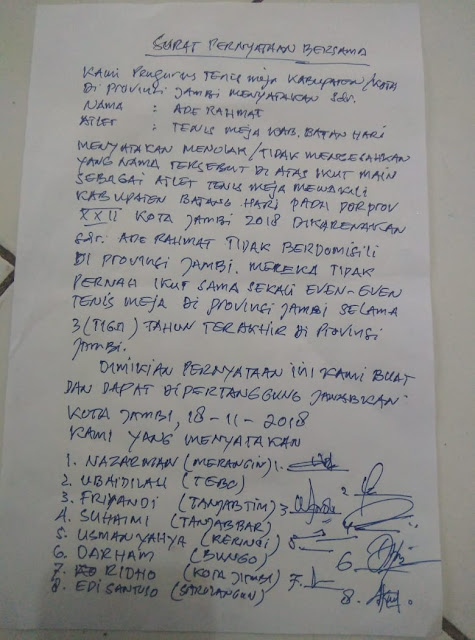 SURAT PERNYATAAN BERSAMA
KAMI PENGURUS TENIS MEJA KABUPATEN/KOTA
DI PROVINSI JAMBI MENYATAKAN SDR.
NAMA : ADE RAHMAT
ATLET : TENIS MEJA KAB. BATAN HARI
MENYATAKAN MENOLAK/TIDAK MENGESAHKAN
YANG NAMA TERSEBUT DI ATAS IKUT MAIN
SEBAGAI ATLET TENIS MEJA MEWAKILI
KABUPATEN BATANG HARI PADA PORPROV
XXII KOTA JAMBI 2018 DIKARENAKAN
SDR. ADE RAHMAT TIDAK BERDOMISILI
DI PROVINSI JAMBI. MEREKA TIDAK
PERNAH IKUT SAMA SEKALI EVEN-EVEN
TENIS MEJA DI PROVINSI JAMBI SELAMA
3 (TIGA) TAHUN TERAKHIR DI PROVINSI
JAMBI.
DIMIKIAN PERNYATAAN INI KAMI BUAT
DAN DAPAT DIPERTANGGUNG JAWABKAN.
KOTA JAMBI, 18-11-2018
KAMI YANG MENYATAKAN
1. NAZARMAN (MERANGIN) 1.
2. UBAIDILAH (TEBO) 2
3. FRIYANDI (TANJABTIM) 3
4. SUHAIMI (TANJABBAR) 4
5. USMAN YAHYA (KERINCI) 5
6. DARHAM (BUNGO) 6
7. RIDHO (KOTA JAMBI) 7.
8. EDI SANTOSO (SAROLANGUN) 8.